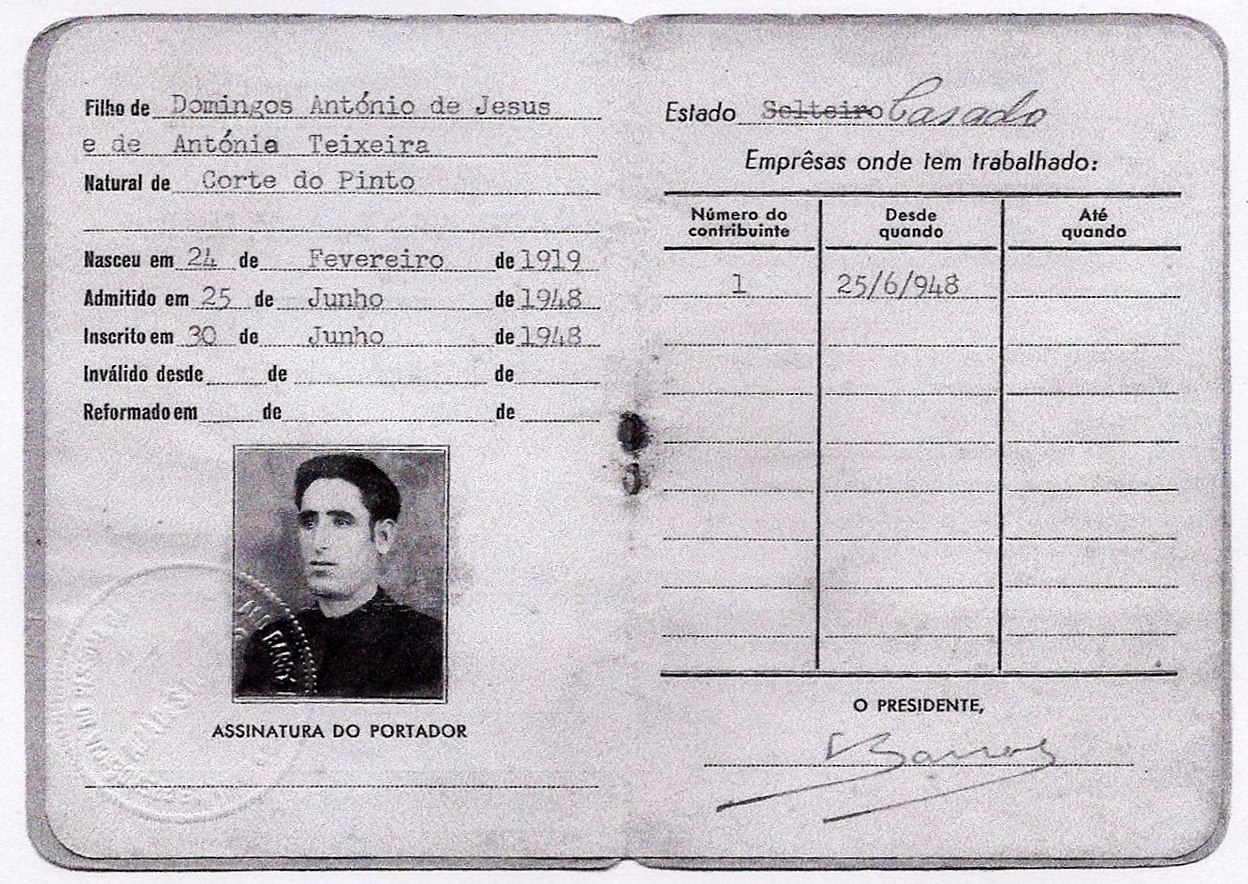 Filho de Domingos António de Jesus
e de Antónia Teixeira
Natural de Corte do Pinto
Nasceu em 24 de Fevereiro de 1919
Admitido em 25 de Junho de 1948
Inscrito em 30 de Junho de 1948
Inválido desde de de
Reformado em de de
ASSINATURA DO PORTADOR
Estado Solteiro Casado
Emprêsas onde tem trabalhado:
Número do contribuinte
Desde quando
Até quando
1 25/6/948
O PRESIDENTE,
Barros